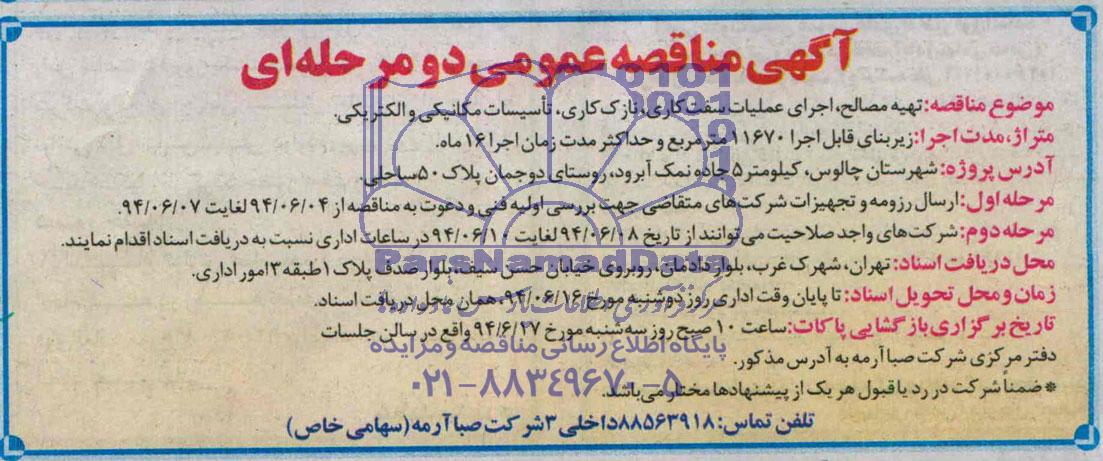 آگهی مناقصه عمومی دو مرحله‌ای
موضوع مناقصه: تهیه مصالح، اجرای عملیات سفت کاری، نازک کاری، تأسیسات مکانیکی و الکتریکی.
متراژ، مدت اجرا: زیربنای قابل اجرا ۱۱۶۷۰ مترمربع و حداکثر مدت زمان اجرا ۱۶ ماه.
آدرس پروژه: شهرستان چالوس، کیلومتر ۵ جاده نمک آبرود، روستای دوجمان پلاک ۵۰ ساحلی.
مرحله اول: ارسال رزومه و تجهیزات شرکت‌های متقاضی جهت بررسی اولیه فنی و دعوت به مناقصه از ۹۴/۰۶/۰۴ لغایت ۹۴/۰۶/۰۷.
مرحله دوم: شرکت‌های واجد صلاحیت می‌توانند از تاریخ ۹۴/۰۶/۰۸ لغایت ۹۴/۰۶/۱۰ در ساعات اداری نسبت به دریافت اسناد اقدام نمایند.
محل دریافت اسناد: تهران، شهرک غرب، بلوار دادمان، روبروی خیابان حسن سیف، بلوار صدف پلاک ۱ طبقه ۳ امور اداری.
زمان و محل تحویل اسناد: تا پایان وقت اداری روز دوشنبه مورخ ۹۴/۰۶/۱۶، همان محل دریافت اسناد.
تاریخ برگزاری بازگشایی پاکات: ساعت ۱۰ صبح روز سه‌شنبه مورخ ۹۴/۶/۲۷ واقع در سالن جلسات
دفتر مرکزی شرکت صبا آرمه به آدرس مذکور.
* ضمناً شرکت در رد یا قبول هر یک از پیشنهادها مختار می‌باشد.
تلفن تماس: ۸۸۵۶۳۹۱۸ داخلی ۳ شرکت صبا آرمه (سهامی خاص)
ParsNamadData
پایگاه اطلاع رسانی مناقصه و مزایده
۰۲۱-۸۸۳۴۹۶۷۰-۵